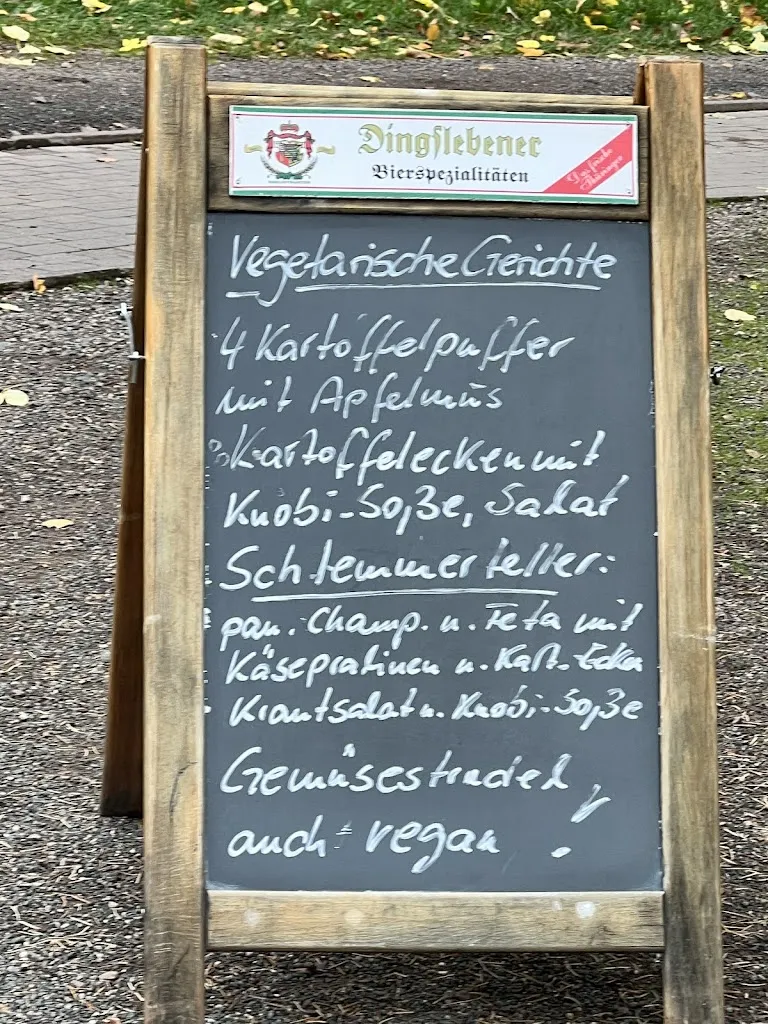 Dingslebener
Bierspezialitäten
Der frische
Thüringer
Vegetarische Gerichte
4 Kartoffelpuffer
mit Apfelmus
Kartoffelecken mit
Knobi-Soße, Salat
Schlemmerteller:
pan. Champ. u. Feta mit
Käsepralinen u. Kart. Ecken
Krautsalat u. Knobi-Soße
Gemüsestrudel
auch vegan !